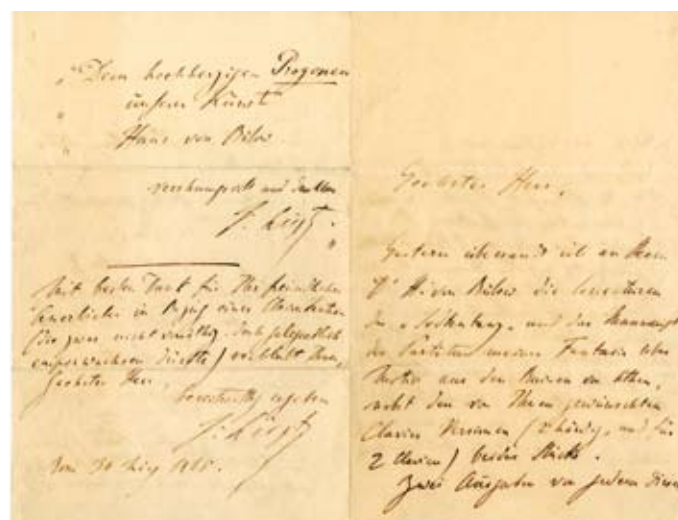 "Dem hochherzigen Progonen
" unserer Kunst
" Hans von Bülow.
und
F. Liszt."
Mit besten Dank für Ihr freundliches
in Bezug eines
zwar nicht doch gelegentlich
emporwachsen dürfte) verbleibt Ihnen,
Geehrter Herr,
ergeben
F. Liszt
Rom 30 1865.
Geehrter Herr,
Gestern ich an Herrn
Dr H. von Bülow die Correcturen
des "Todtentanz" und das Manuscript
der Partitur meiner Fantasie über
Motive aus den Ruinen von Athen,
nebst den von Ihnen gewünschten
Clavier Versionen (2 händig, und für
2 Claviere) beider Stücke.
Zwei Ausgaben von jedem dieser